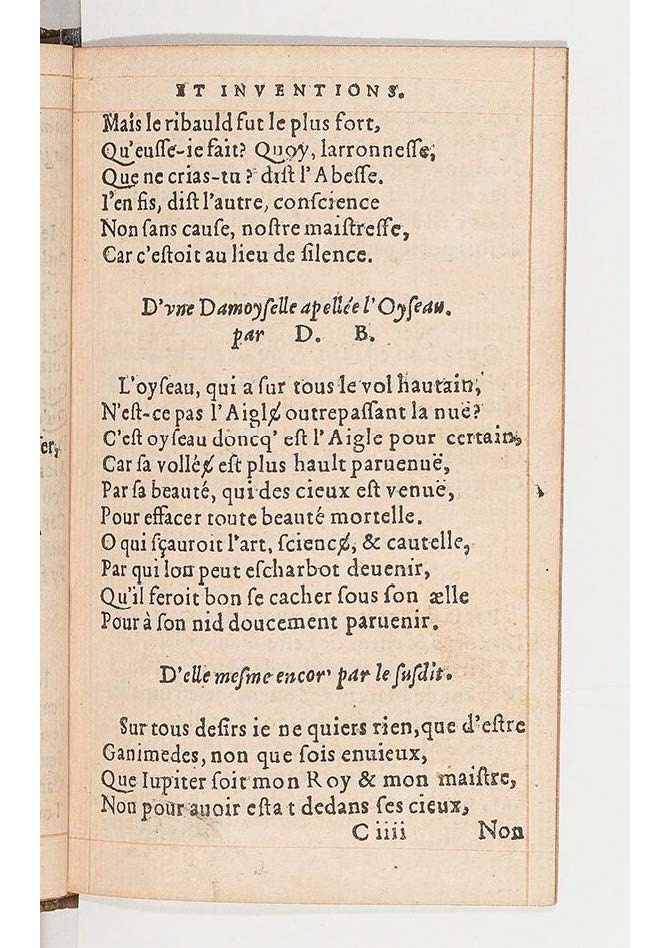 ET INVENTIONS.
Mais le ribauld fut le plus fort,
Qu'eusse-ie fait? Quoy, larronnesse,
Que ne crias-tu? dist l'Abesse.
I'en fis, dist l'autre, conscience
Non sans cause, nostre maistresse,
Car c'estoit au lieu de silence.
D'vne Damoyselle apellée l'Oyseau.
par D. B.
L'oyseau, qui a sur tous le vol hautain,
N'est-ce pas l'Aiglɇ outrepassant la nuë?
C'est oyseau doncq' est l'Aigle pour certain,
Car sa volléɇ est plus hault paruenuë,
Par sa beauté, qui des cieux est venuë,
Pour effacer toute beauté mortelle.
O qui sçauroit l'art, sciencɇ, & cautelle,
Par qui lon peut escharbot deuenir,
Qu'il feroit bon se cacher sous son ælle
Pour à son nid doucement paruenir.
D'elle mesme encor' par le susdit.
Sur tous desirs ie ne quiers rien, que d'estre
Ganimedes, non que sois enuieux,
Que Iupiter soit mon Roy & mon maistre,
Non pour auoir estat dedans ses cieux,
C iiii Non
er,